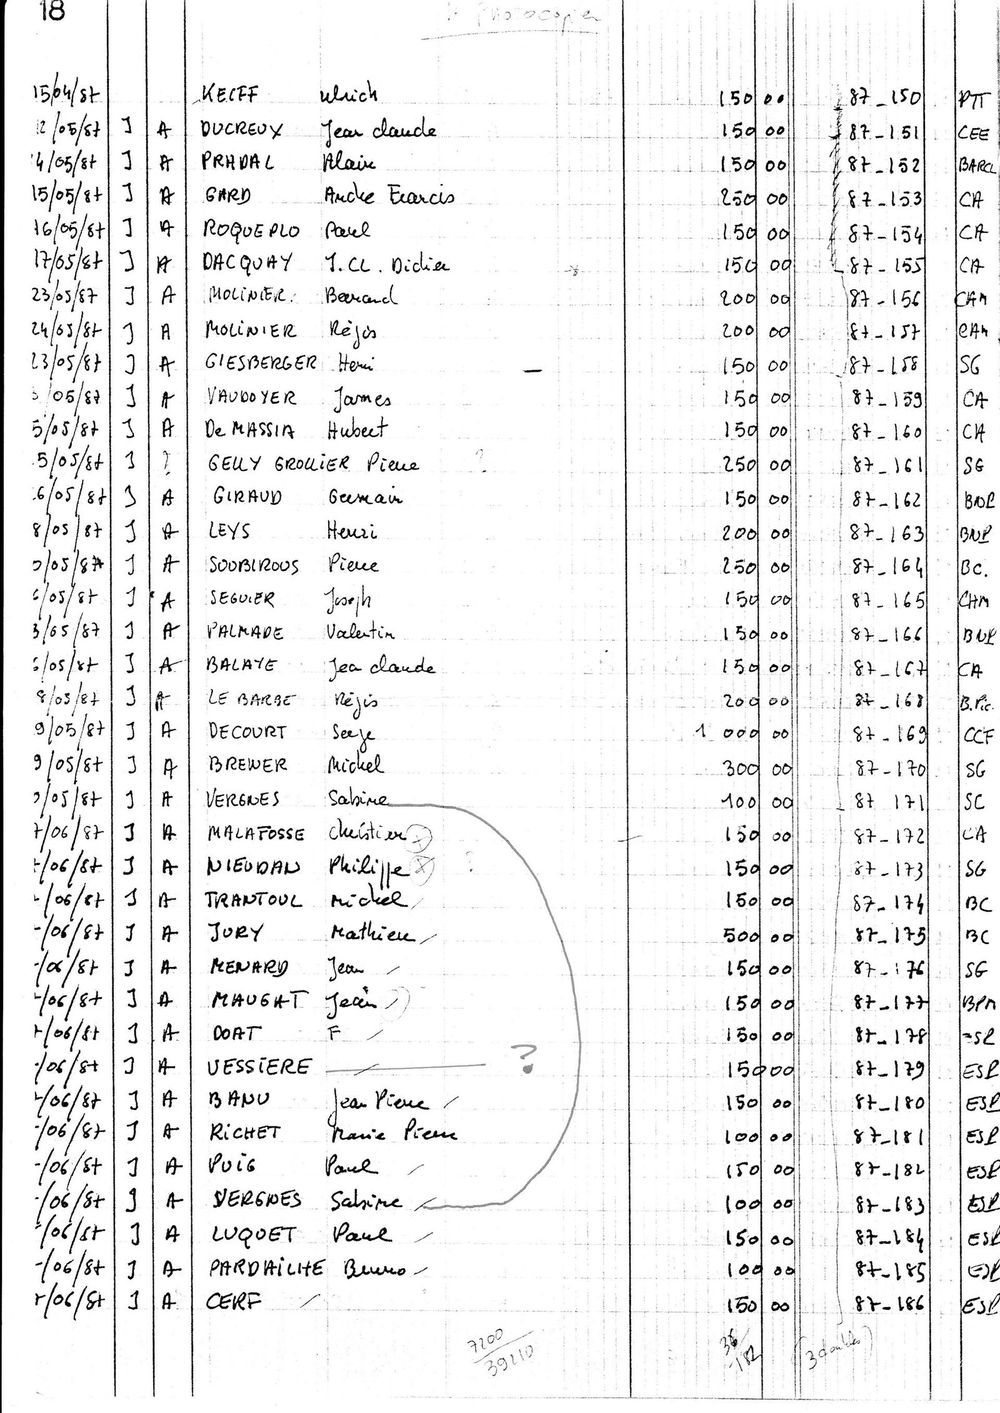 18
à photocopier
15/04/87 KEIFF Ulrich 150 00 87_150 PTT
2/05/87 J A DUCREUX Jean claude 150 00 87-151 CEE
4/05/87 J A PRADAL Alain 150 00 87_152 BARCL
15/05/87 J A GARD Andre Francis 250 00 87_153 CA
16/05/87 J A ROQUEPLO Paul 150 00 87-154 CA
17/05/87 J A DACQUAY J.CL. Didier 150 00 87-155 CA
23/05/87 J A MOLINIER Bertrand 200 00 87-156 CAM
24/05/87 J A MOLINIER Régis 200 00 87-157 CAM
23/05/87 J A GIESBERGER Henri 150 00 87-158 SG
/05/87 J A VAUDOYER James 150 00 87-159 CA
5/05/87 J A De MASSIA Hubert 150 00 87-160 CA
5/05/87 J ? GELLY GROLLIER Pierre ? 250 00 87_161 SG
6/05/87 J A GIRAUD Germain 150 00 87-162 BNP
8/05/87 J A LEYS Henri 200 00 87-163 BNP
/05/87 J A SOUBIROUS Pierre 250 00 87-164 BC.
/05/87 J A SEGUIER Joseph 150 00 87-165 CAM
3/05/87 J A PALMADE Valentin 150 00 87-166 BNP
/05/87 J A BALAYE Jean claude 150 00 87-167 CA
8/05/87 J A LE BARBE Régis 200 00 87-168 B.Pic.
9/05/87 J A DECOURT Serge 1 000 00 87-169 CCF
9/05/87 J A BREWER Michel 300 00 87-170 SG
/05/87 J A VERGNES Sabine 100 00 87 171 SC
7/06/87 J A MALAFOSSE Christian 150 00 87-172 CA
/06/87 J A NIEUDAN Philippe ? 150 00 87-173 SG
/06/87 J A TRANTOUL Michel 150 00 87-174 BC
/06/87 J A JURY Mathieu 500 00 87-175 BC
/06/87 J A MENARD Jean 150 00 87-176 SG
/06/87 J A MAUGHT Jean 150 00 87-177 BPM
/06/87 J A DOAT F 150 00 87-178
/06/87 J A VESSIERE ? 150 00 87-179 ESP
/06/87 J A BANU Jean Pierre 150 00 87-180 ESP
/06/87 J A RICHET Marie Pierre 100 00 87-181 ESP
/06/87 J A PUIG Paul 150 00 87-182 ESP
/06/87 J A VERGNES Sabine 100 00 87-183 ESP
/06/87 J A LUQUET Paul 150 00 87-184 ESP
/06/87 J A PARDAILHE Bruno 100 00 87-185 ESP
/06/87 J A CERF 150 00 87-186 ESP
7200 36 (3 doubles)
39210 182